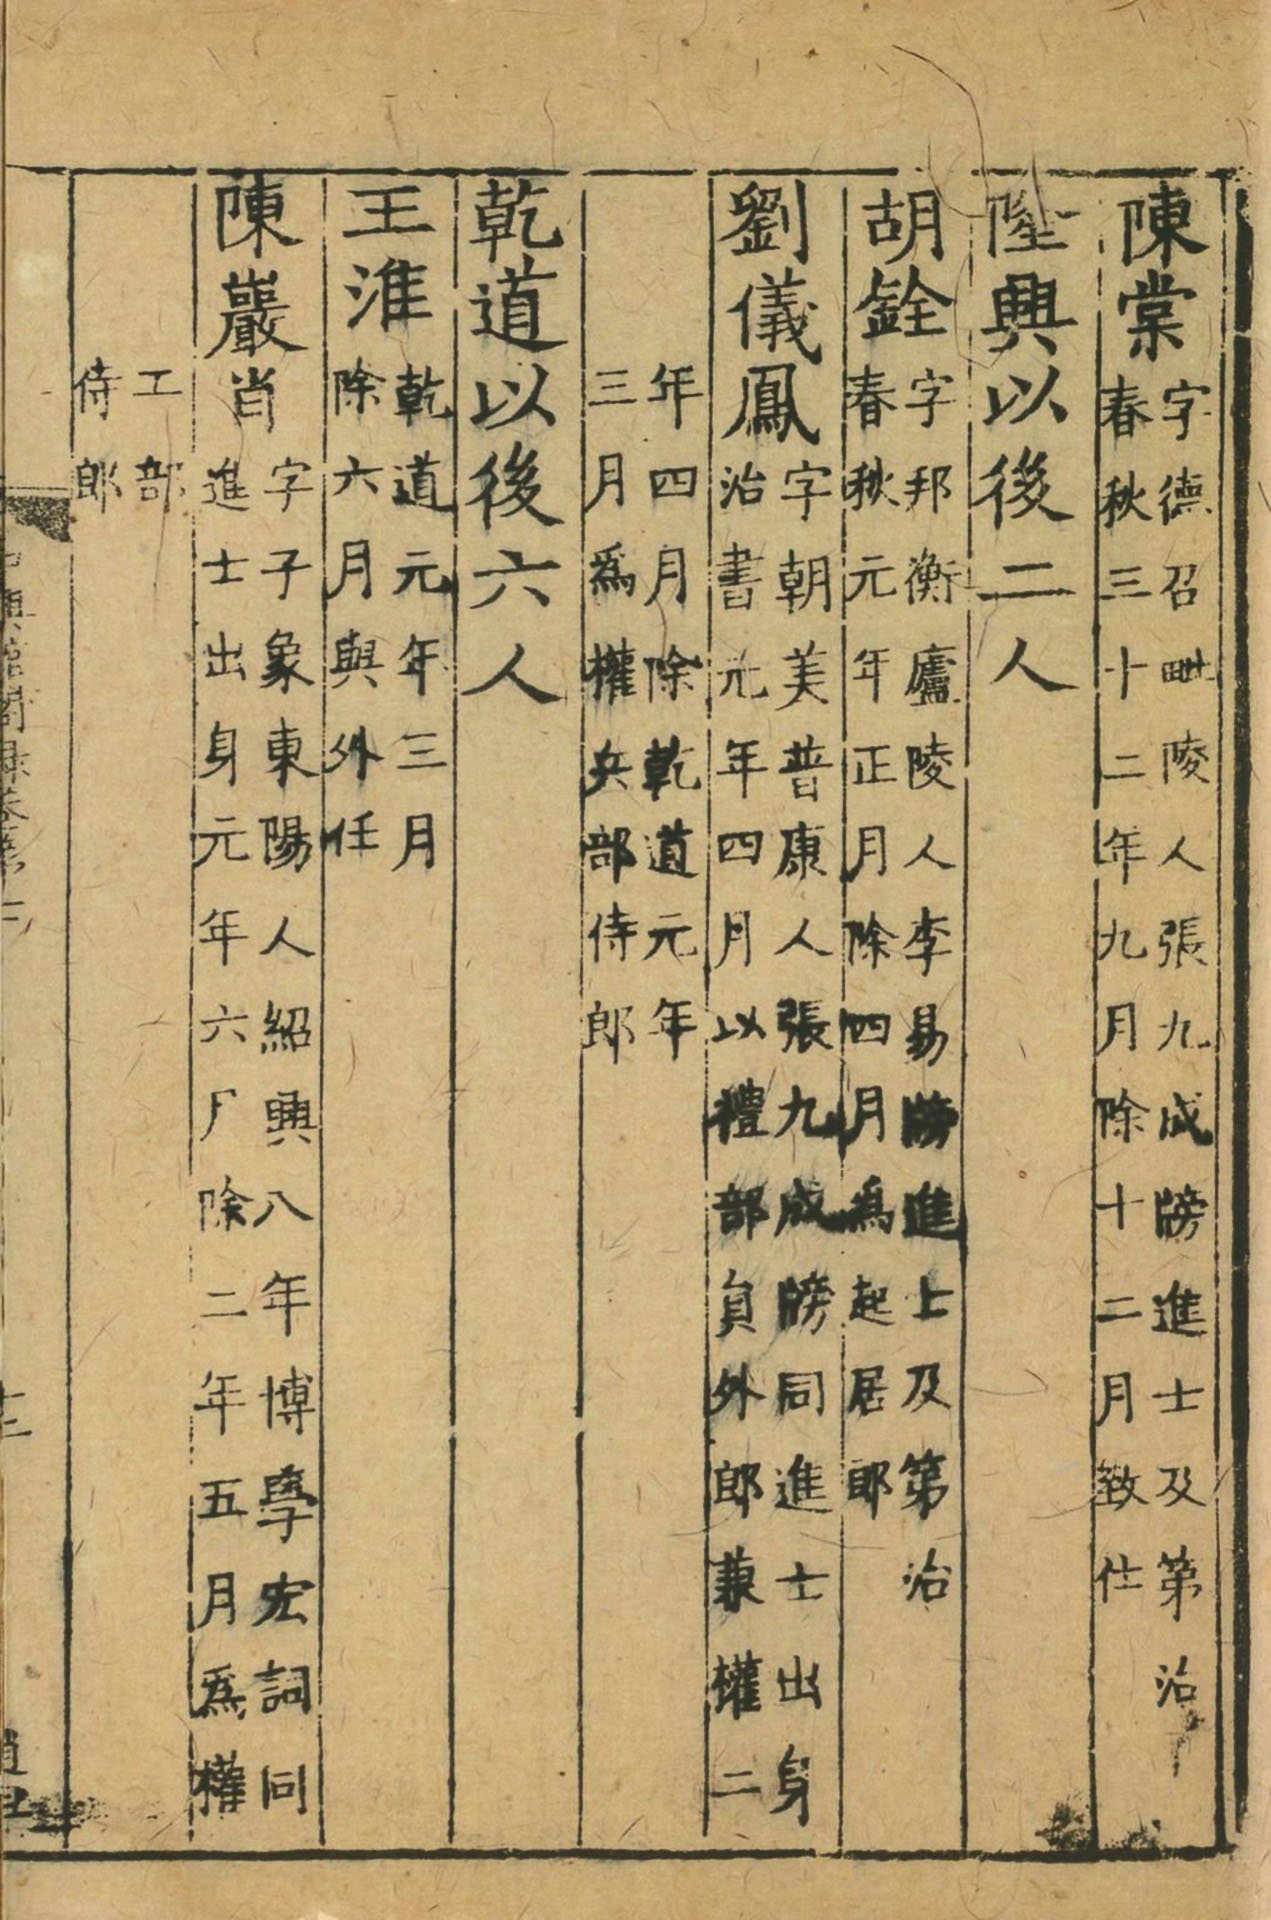 陳棠字德召毗陵人張九成牓進士及第治
春秋三十二年九月除十二月致仕
隆興以後二人
胡銓字邦衡廬陵人李易牓進士及第治
春秋元年正月除四月爲起居郎
劉儀鳳字朝美普康人張九成牓同進士出身
治書元年四月以禮部員外郎兼權二
年四月除乾道元年
三月爲權兵部侍郎
乾道以後六人
王淮乾道元年三月
除六月與外任
陳巖肖字子象東陽人紹興八年博學宏詞同
進士出身元年六月除二年五月爲權
工部
侍郎